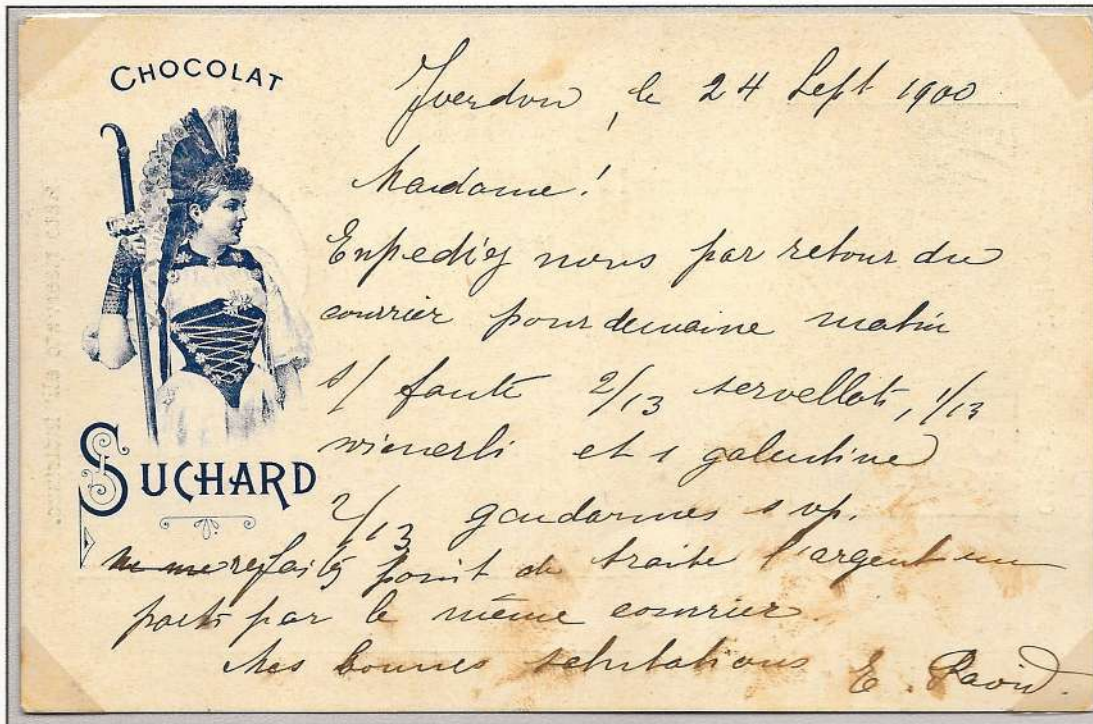 CHOCOLAT
SUCHARD
Yverdon, le 24 Sept 1900
Madame!
Enpediez nous par retour du
courrier pour demaine matin
s/ faute 2/13 servellats, 1/13
wienerli et 1 galentine
2/13 gendarmes s vp.
faites point de traite l'argent
parts par le même courrier
Mes bonnes salutations E. Ravid.